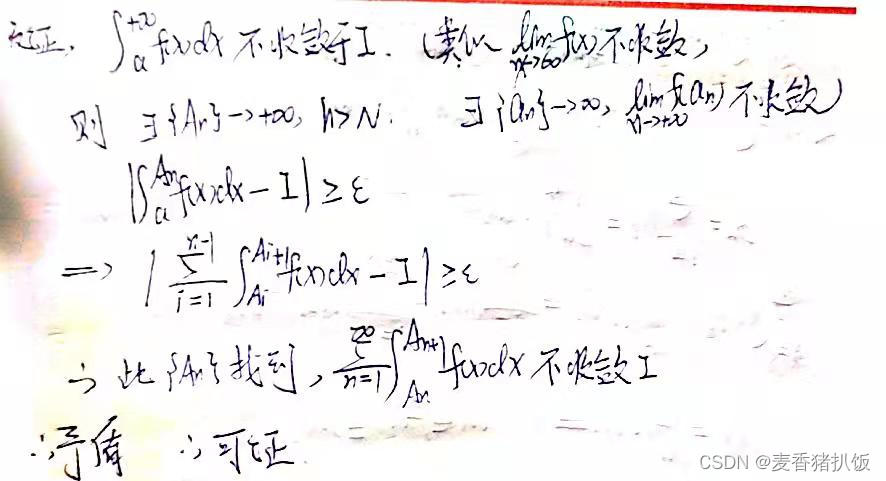 反证, ∫_a^{+∞} f(x)dx 不收敛于I. (类似 lim_{x→∞} f(x) 不收敛,
则 ∃{An}→+∞, n>N. ∃{an}→∞, lim_{n→+∞} f(an) 不收敛)
|∫_a^{An} f(x)dx - I| ≥ ε
=> |∑_{i=1}^{n-1} ∫_{Ai}^{Ai+1} f(x)dx - I| ≥ ε
∴ 此{An}找到, ∑_{n=1}^{∞} ∫_{An}^{An+1} f(x)dx 不收敛I
∴矛盾 ∴可证
CSDN @麦香猪扒饭